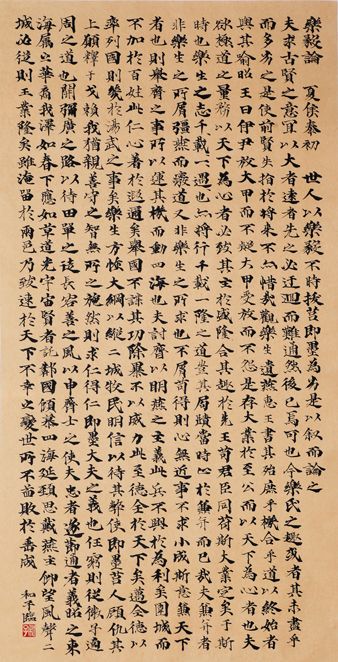 樂毅論　夏侯泰初　世人以樂毅不時拔莒即墨為劣是以叙而論之
夫求古賢之意宜以大者遠者先之必迂迴而難通然後已焉可也今樂氏之趣或者其未盡乎
而多劣之是使前賢失指於將來不亦惜哉觀樂生遺燕惠王書其殆庶乎機合乎道以終始者
與其喻昭王曰伊尹放大甲而不疑大甲受放而不怨是存大業於至公而以天下為心者也夫
欲極道之量務以天下為心者必致其主於盛隆合其趣於先王苟君臣同符斯大業定矣于斯
時也樂生之志千載一遇也亦將行千載一隆之道豈其局蹟當時止於兼并而已哉夫兼并者
非樂生之所屑強燕而廢道又非樂生之所求也不屑苟得則心無近事不求小成斯意兼天下
者也則舉齊之事所以運其機而動四海也夫討齊以明燕主之義此兵不興於為利矣圍城而
不加於百姓此仁心著於遐邇矣舉國不謀其功除暴不以威力此至德全於天下矣邁全德以
率列國則幾於湯武之事矣樂生方恢大綱以縱二城牧民明信以待其弊使即墨莒人顧仇其
上願釋干戈賴我猶親善守之智無所之施然則求仁得仁即墨大夫之義也任窮則從微子適
周之道也開彌廣之路以待田單之徒長容善之風以申齊士之使夫忠者遂節通者義昭之東
海屬之華裔我澤如春下應如草道光宇宙賢者託鄰國傾慕四海延頸思戴燕主仰望風聲二
城必從則王業隆矣雖淹留於兩邑乃致速於天下不幸之變世所不圖敗於垂成
和平臨